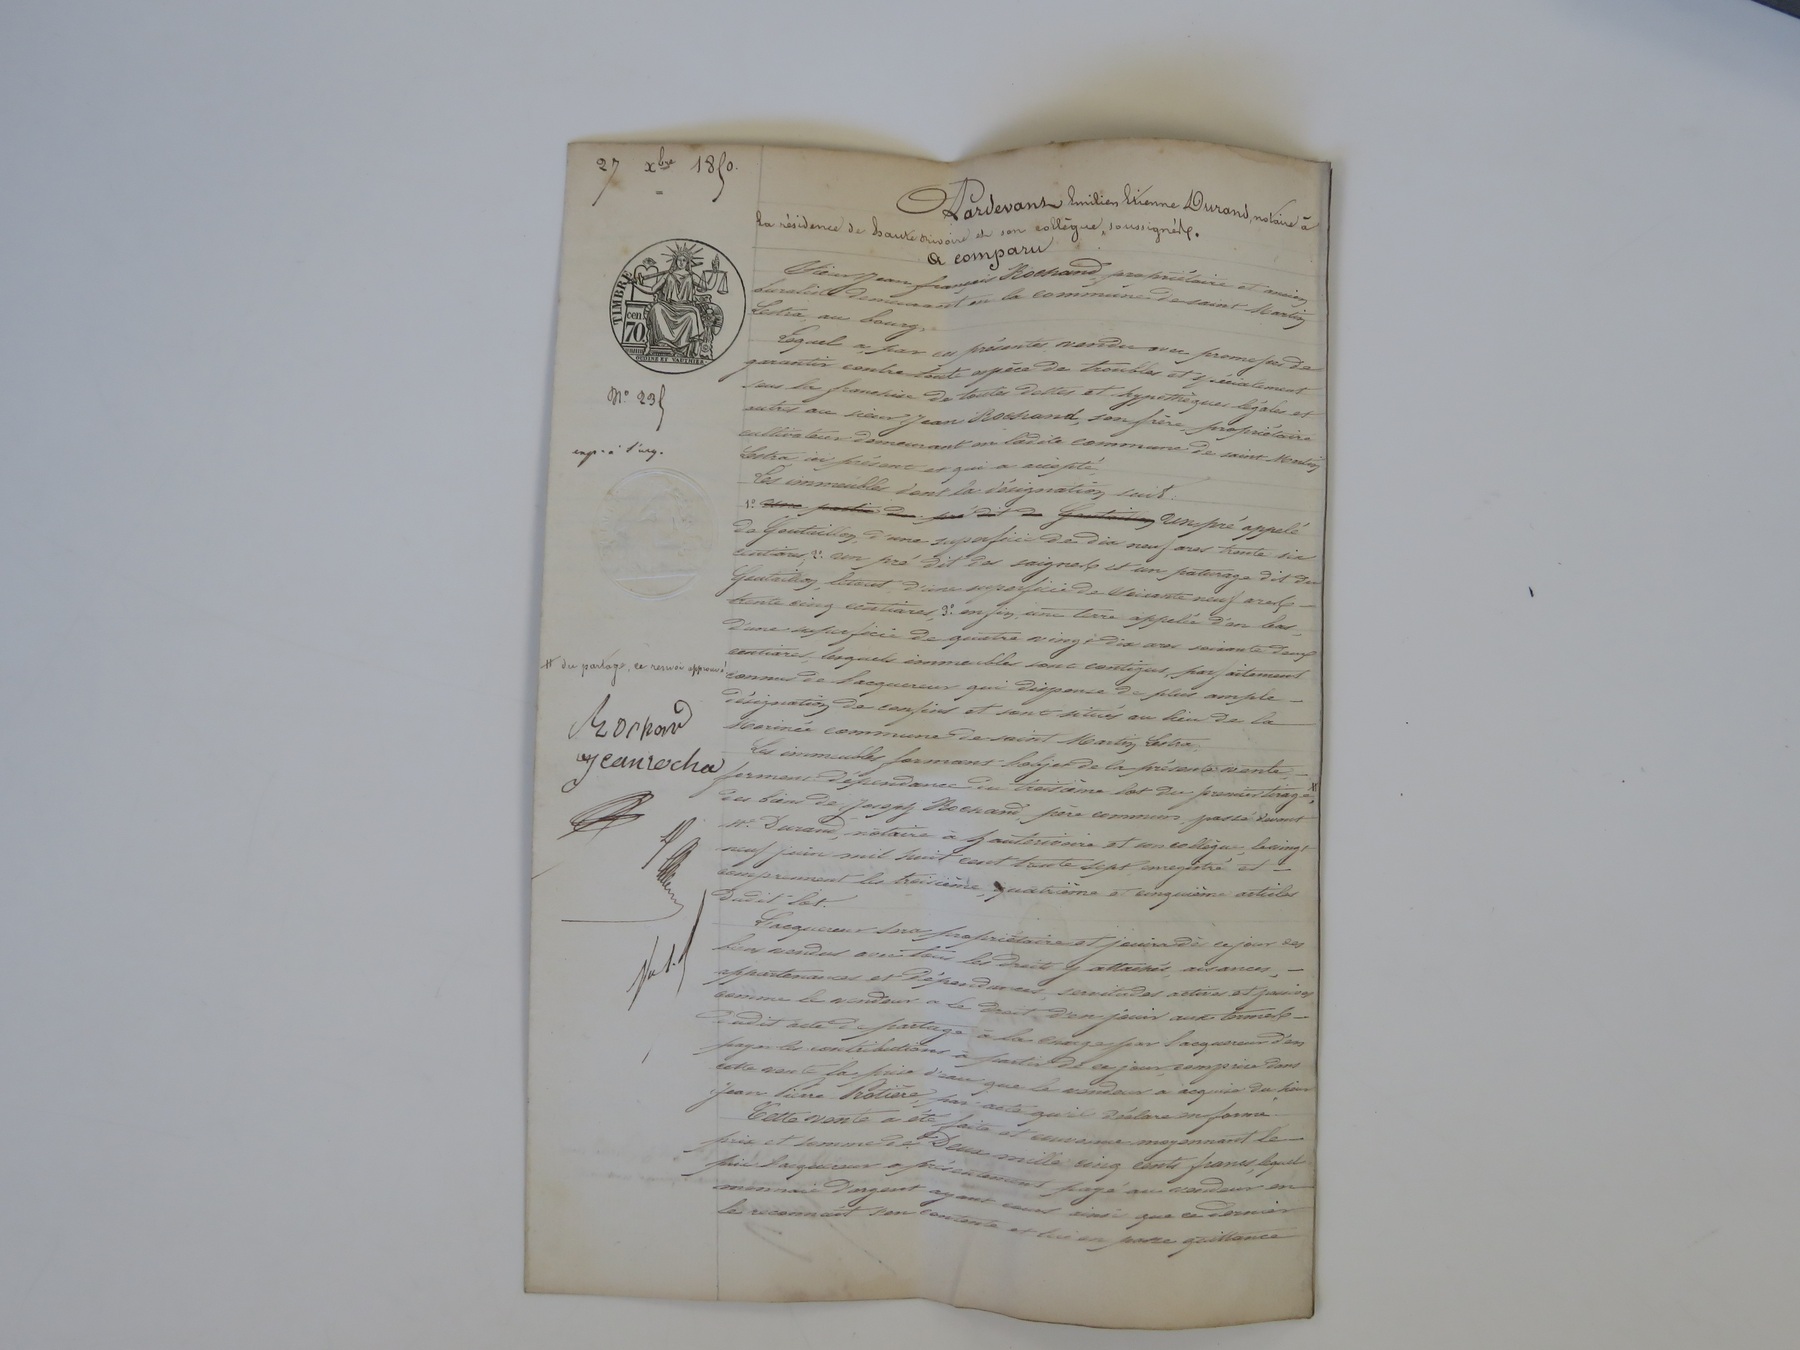 27 xbre 1850.
Pardevant Emilien Etienne Durand, notaire à
la résidence de hauterivoire et son collègue, soussignés.
A comparu
TIMBRE
70
cen
Nº 235
exp. à l'acq.
Sieur Jean françois Rochand, propriétaire et ancien
buraliste demeurant en la commune de saint Martin
Lestra, au bourg.
Lequel a, par ces présentes vendu avec promesse de
garantir contre toute espèce de troubles et spécialement
sous la franchise de toutes dettes et hypothèques légales et
autres au sieur Jean Rochand, son frère, propriétaire
cultivateur demeurant en ladite commune de saint Martin
Lestra ici présent et qui a accepté,
Les immeubles dont la désignation suit.
1º Une partie du pré dit de Goutaillon Un pré appelé
de Goutaillon, d'une superficie de dix neuf ares trente six
centiares, 2º un pré dit des saignes et un paturage dit de
Goutaillon, d'une superficie de soixante neuf ares
trente cinq centiares, 3º enfin, une terre appelée d'en bas,
d'une superficie de quatre vingt dix ares soixante deux
centiares, lesquels immeubles sont contigus, parfaitement
connus de l'acquereur qui dispense de plus ample
désignation de confins et sont situés au lieu de la
commune de saint Martin Lestra.
Les immeubles formant l'objet de la présente vente,
forment dépendance du troisième lot du premier tirage #
des biens de Joseph Rochand, père commun, passé devant
Me Durand, notaire à hauterivoire et son collègue, le vingt
neuf juin mil huit cent trente sept, enregistré et
comprennent les troisième, quatrième et cinquième articles
dudit lot.
# du partage, ce renvoi approuvé
Rochand
Jean rocha
L'acquereur sera propriétaire et jouira dès ce jour des
biens vendus avec tous les droits y attachés, aisances,
appartenances et dépendances, servitudes actives et passives
comme le vendeur a le droit d'en jouir aux termes
dudit acte de partage à la charge par l'acquereur d'en
payer les contributions à partir de ce jour, comprise dans
cette vente la prise d'eau que le vendeur a acquise du sieur
Jean Pierre Rotière, par acte qu'il déclare en forme.
Cette vente a été faite et convenue moyennant le
prix et somme de Deux mille cinq cents francs, lequel
prix l'acquereur a présentement payé au vendeur en
monnaie d'argent ayant cours ainsi que ce dernier
le reconnait s'en contente et lui en passe quittance